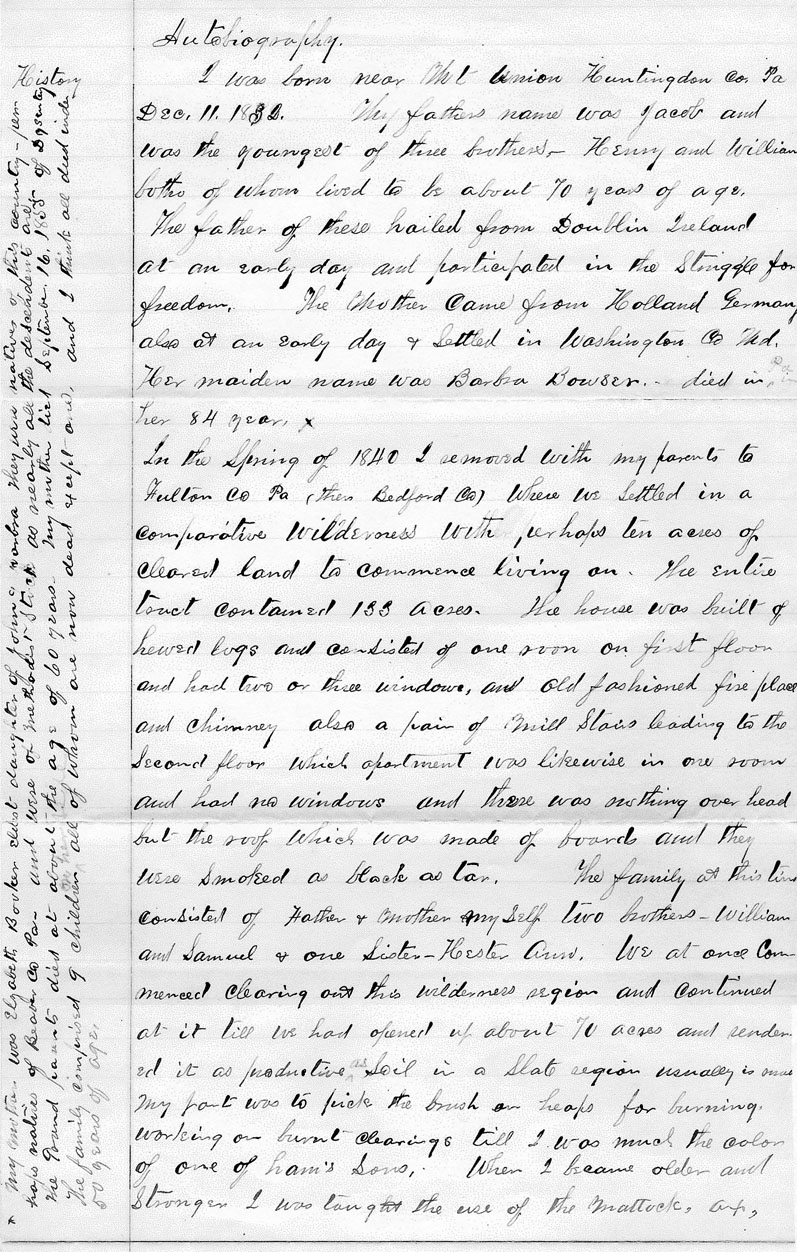 Autobiography.
I was born near Mt Union Huntingdon Co. Pa
Dec. 11. 1832. My fathers name was Jacob and
was the youngest of three brothers, - Henry and William
both of whom lived to be about 70 years of age.
The father of these hailed from Doublin Ireland
at an early day and participated in the Struggle for
freedom. The Mother Came from Holland Germany
also at an early day & Settled in Washington Co Md.
Her maiden name was Barbra Bowser. - died in Pa in
her 84 year. x
In the Spring of 1840 I removed with my parents to
Fulton Co Pa (then Bedford Co) Where we Settled in a
comparative wilderness with perhaps ten acres of
cleared land to commence living on. The entire
tract contained 133 Acres. The house was built of
hewed logs and consisted of one room on first floor
and had two or three windows, and old fashioned fire place
and chimney also a pair of Mill Stairs leading to the
Second floor which apartment was likewise in one room
and had no windows and there was nothing over head
but the roof which was made of boards and they
were Smoked as black as tar. The family at this time
consisted of Father & Mother my Self two brothers - William
and Samuel & one Sister - Hester Ann. We at once Com-
menced clearing out this wilderness region and continued
at it till we had opened up about 70 acres and render-
ed it as productive as Soil in a Slate region usually is made
My part was to pick the brush on heaps for burning.
working on burnt clearings till I was much the color
of one of ham's Sons,. When I became older and
Stronger I was taught the use of the Mattock, ax,
History
x My mother was Elzabeth Booker eldest daughter of John & Barbra they were natives of this country - per-
haps natives of Beaver Co Pa and were of Methodist Stock as nearly all the descendents are.
The Grand parents died at about the age of 60 years. My mother died September. 16. 1855 of Dysentery
The family comprised 9 children all of whom are now dead except one. and I think all died under
50 years of age.